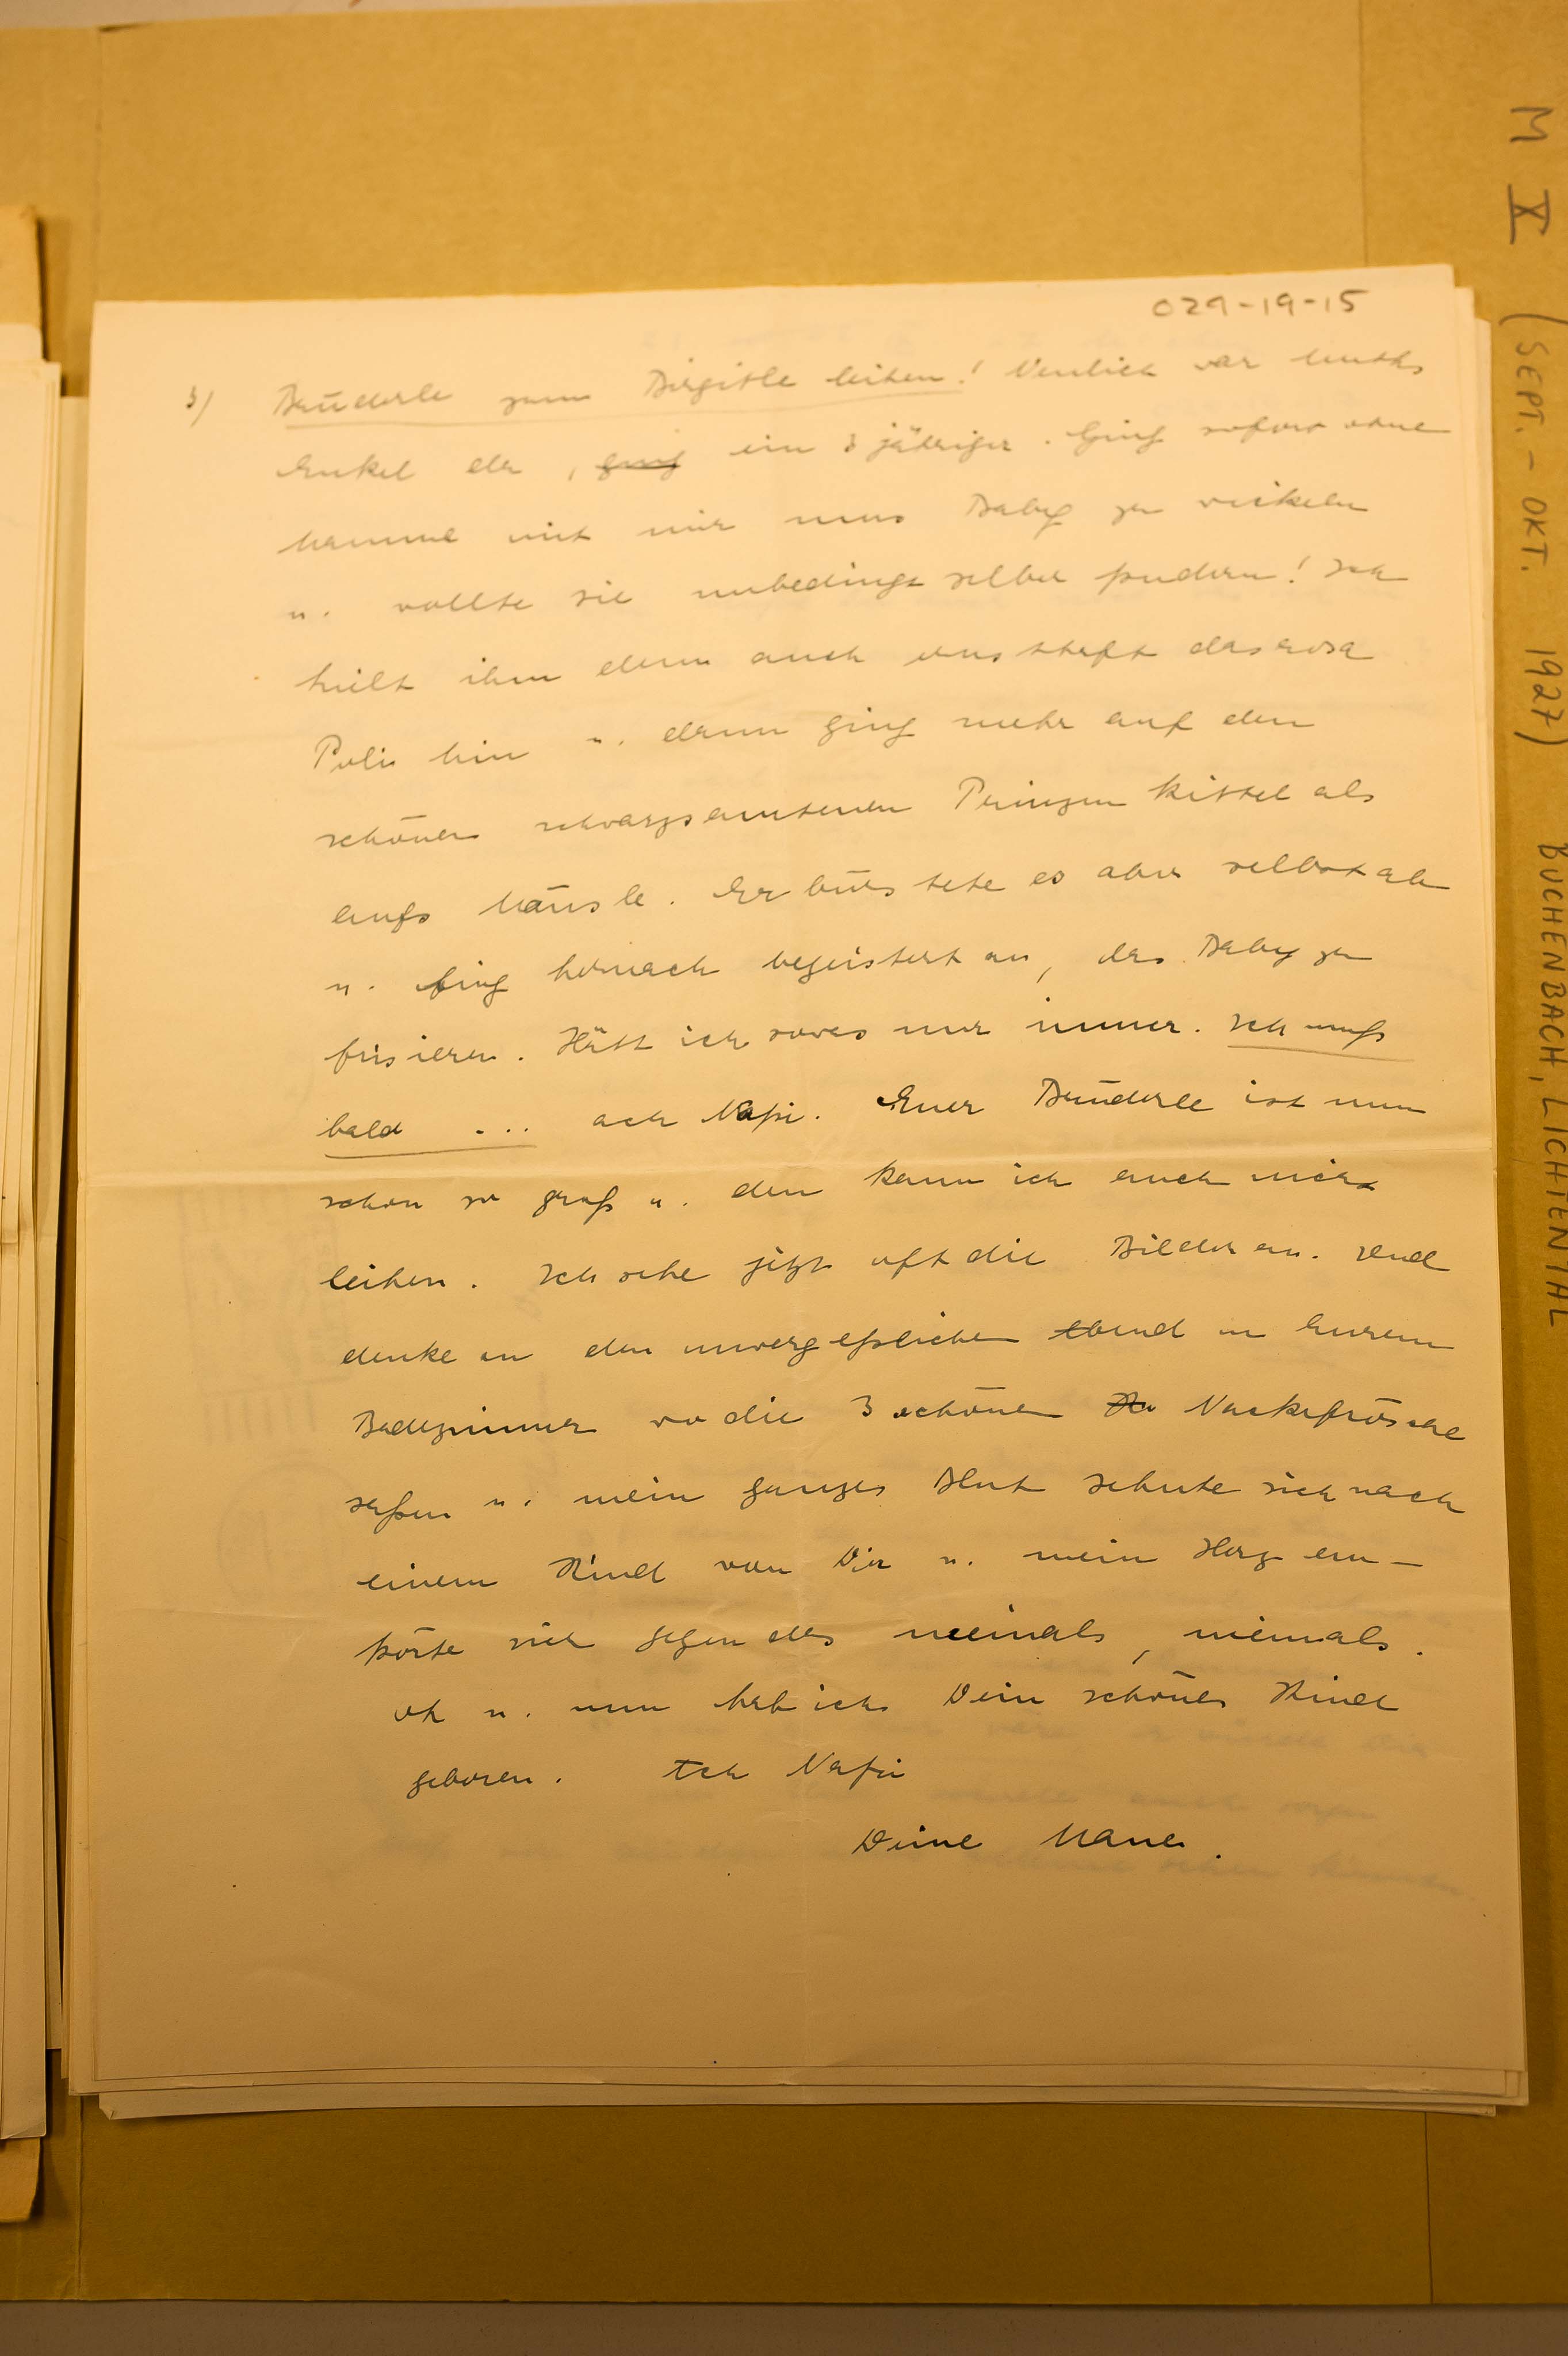 029-19-15
3/ Brüderle zum Birgitle leihen! Neulich war Muths
Enkel da, ging ein 3 jähriger. Ging sofort ohne
Mamme mit mir uns Baby zu wickeln
u. wollte sie unbedingt selber pudern! Ich
hielt ihm denn auch das rosa
Popo hin u. dann ging mehr auf den
schönen schwarzsamtenen Prinzen kittel als
aufs Mäusle. Er bürstete es aber selbst ab
u. fing hernach begeistert an, das Baby zu
frisieren. Hätt ich sowas nur immer. Ich muß
bald ... ach Napi. Euer Brüderle ist nun
schon so groß u. den kann ich auch nicht
leihen. Ich sehe jetzt oft die Bilder an. Und
denke an den unvergeßlichen Abend in Eurem
Badezimmer wo die 3 schönen Nackefrösche
saßen u. mein ganzes Blut sehnte sich nach
einem Kind von Dir u. mein Herz em-
pörte sich gegen das niemals, niemals.
oh u. nun hab ich Dein schönes Kind
geboren. Ach Napi
Deine Mane.
M X (SEPT. - OKT. 1927) BUCHENBACH, LICHTENTHAL